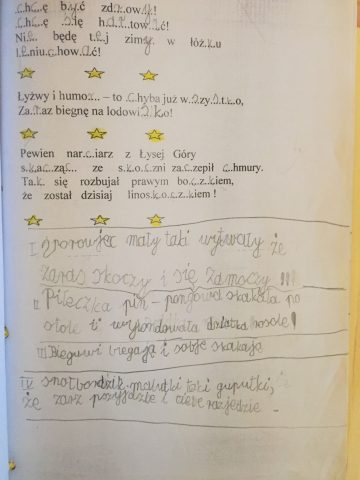 .ch.c.ę być zdr.owy!
.ch.c.ę .się h.a.r.tow.ać!
Nie. będę t.e.j zimy. w łóż.k.u
l.e.niu.c.how.a.ć!
Łyżwy i humor.. – to .c.hyba już w.s.zy.s.t.k.o,
Za.r.az biegnę na lodowi.s.ko!
Pewien nar.c.iarz z Łysej Góry
s.k.a.c.ząc... ze s.k.o.c.zni za.c.zepił c.hmury.
Ta.k. się rozbujał prawym bo.c.z.kiem,
że został dzisiaj linos.k.o.c.z.kiem !
I mały taki wytwały że
zaras skoczy i się zamoczy !!!
II Piłeczka pin-pongowa skakała po
stole i wykondowała bosole!
III Bieguwi biegają i sobje skakają
IV snołbordzik malutki taki guputki,
że zarz przyjedzie i ciebe razjedzie -